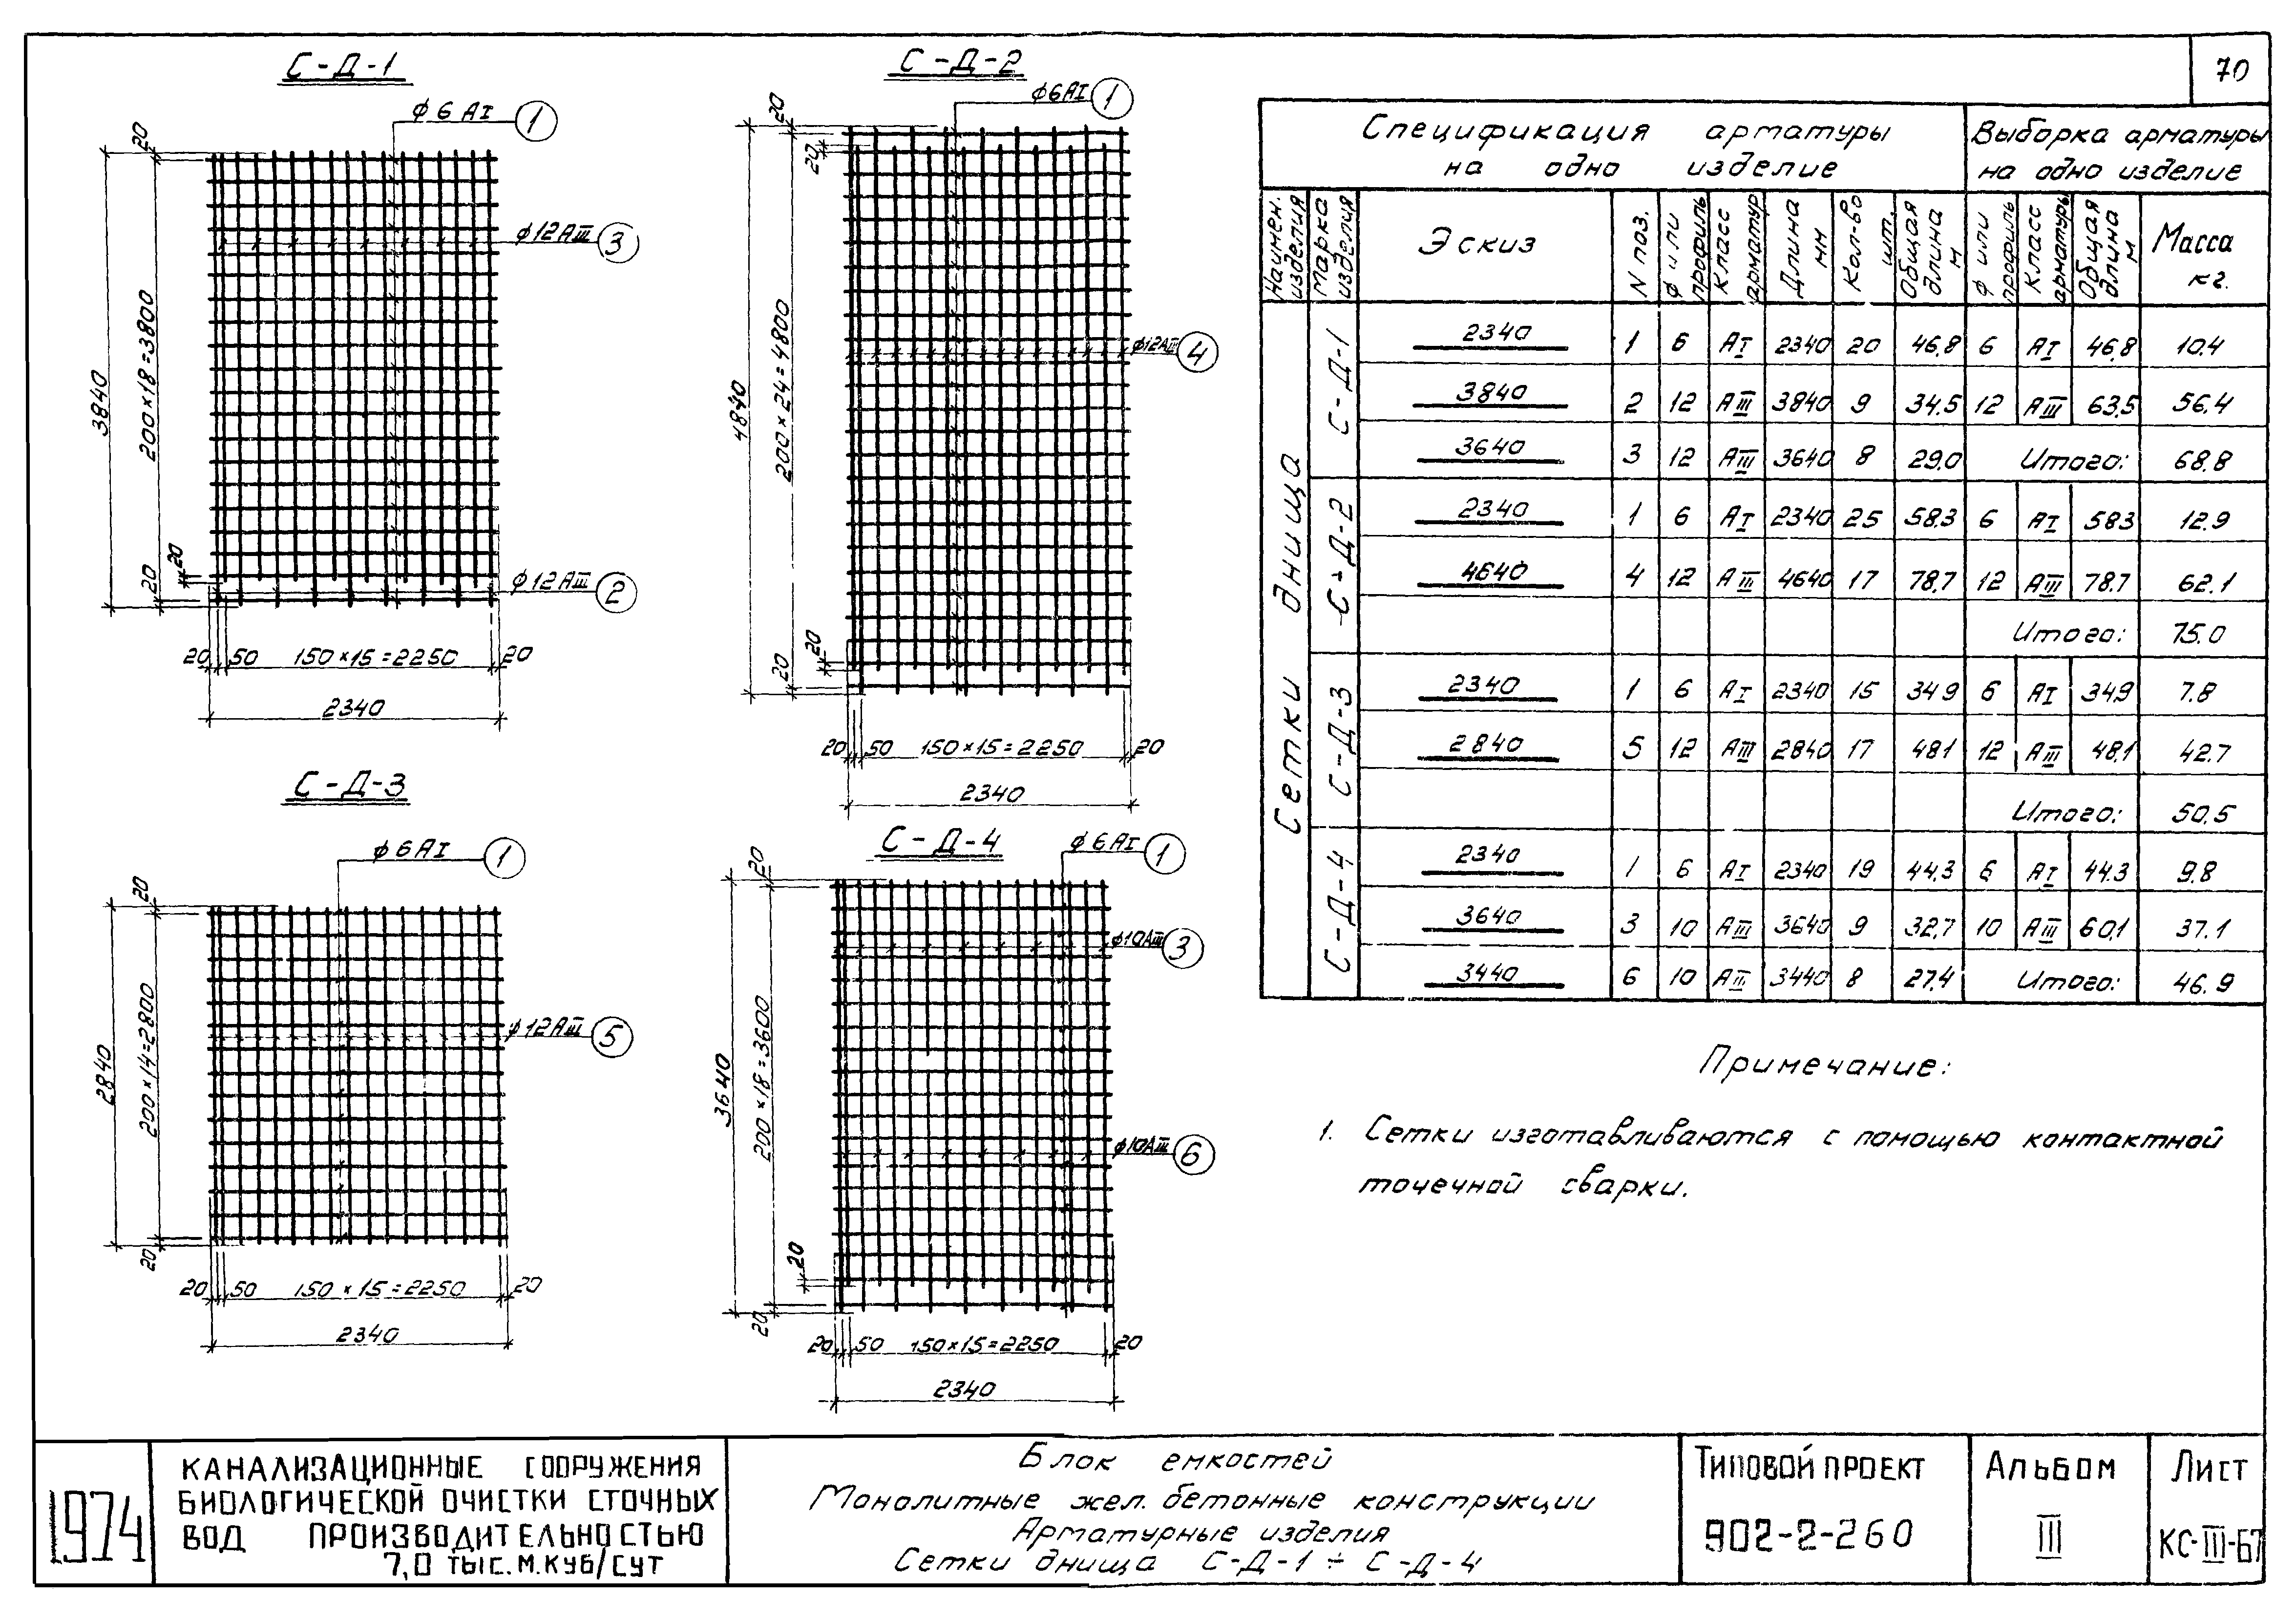 70
С-Д-1
ϕ6АI 1
20
3840
200×18=3800
ϕ12АIII 3
20
20
ϕ12АIII 2
20 50 150×15=2250 20
2340
С-Д-2
ϕ6АI 1
20
20
4840
200×24=4800
ϕ12АIII 4
20
20
20 50 150×15=2250 20
2340
С-Д-3
ϕ6АI 1
20
2840
200×14=2800
ϕ12АIII 5
20
20 50 150×15=2250 20
2340
С-Д-4
ϕ6АI 1
20
3640
200×18=3600
ϕ10АIII 3
ϕ10АIII 6
20
20
20 50 150×15=2250 20
2340
Спецификация арматуры на одно изделие
Выборка арматуры на одно изделие
Наимен. изделия Марка изделия Эскиз N поз. ϕ или профиль Класс арматур Длина мм Кол-во шт. Общая длина м ϕ или профиль Класс арматуры Общая длина м Масса кг.
Сетки днища
С-Д-1
2340 1 6 АI 2340 20 46,8 6 АI 46,8 10.4
3840 2 12 АIII 3840 9 34.5 12 АIII 63,5 56.4
3640 3 12 АIII 3640 8 29.0 Итого: 68.8
С-Д-2
2340 1 6 АI 2340 25 58.3 6 АI 583 12.9
4640 4 12 АIII 4640 17 78.7 12 АIII 78.7 62.1
Итого: 75.0
С-Д-3
2340 1 6 АI 2340 15 34 9 6 АI 34,9 7.8
2840 5 12 АIII 2840 17 481 12 АIII 48,1 42.7
Итого: 50.5
С-Д-4
2340 1 6 АI 2340 19 44.3 6 АI 44.3 9.8
3640 3 10 АIII 3640 9 32,7 10 АIII 60,1 37.1
3440 6 10 АIII 3440 8 27.4 Итого: 46.9
Примечание:
1. Сетки изготавливаются с помощью контактной
точечной сварки.
1974
КАНАЛИЗАЦИОННЫЕ СООРУЖЕНИЯ
БИОЛОГИЧЕСКОЙ ОЧИСТКИ СТОЧНЫХ
ВОД ПРОИЗВОДИТЕЛЬНОСТЬЮ
7,0 ТЫС.М.КУБ/СУТ
Блок емкостей
Монолитные жел. бетонные конструкции
Арматурные изделия
Сетки днища С-Д-1 ÷ С-Д-4
ТИПОВОЙ ПРОЕКТ
902-2-260
АЛЬБОМ
III
ЛИСТ
КС-III-67